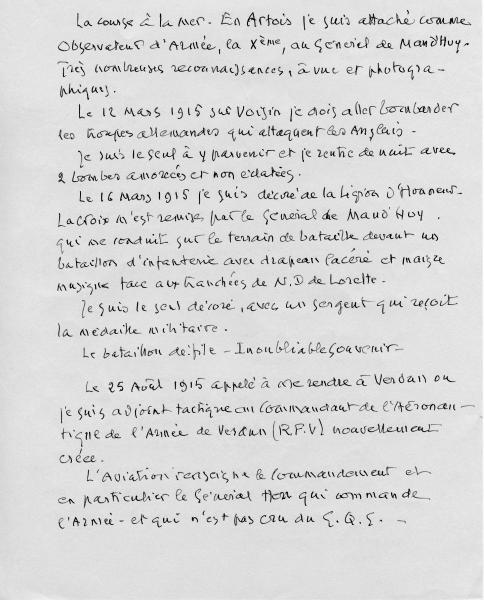 La course à la mer. En Artois je suis attaché comme
Observateur d'Armée, la Xème, au Général de Maud'Huy.
Très nombreuses reconnaissances, à vue et photogra-
phiques.
Le 12 Mars 1915 sur Voisin je dois aller bombarder
les troupes allemandes qui attaquent les Anglais.
Je suis le seul à y parvenir et je rentre de nuit avec
2 bombes amorcées et non éclatées.
Le 16 Mars 1915 je suis décoré de la Légion d'Honneur.
La croix m'est remise par le Général de Maud'Huy.
qui me conduit sur le terrain de bataille devant un
bataillon d'infanterie avec drapeau lacéré et maigre
musique face aux tranchées de N.D de Lorette.
Je suis le seul décoré, avec un sergent qui reçoit
la médaille militaire.
Le bataillon défile - Inoubliable souvenir -
Le 25 Août 1915 appelé à me rendre à Verdun ou
je suis adjoint tactique au Commandant de l'Aéronau-
tique de l'Armée de Verdun (R.F.V) nouvellement
créée.
L'Aviation renseigne le commandement et
en particulier le Général qui commande
l'Armée - et qui n'est pas cru du G.Q.G. -